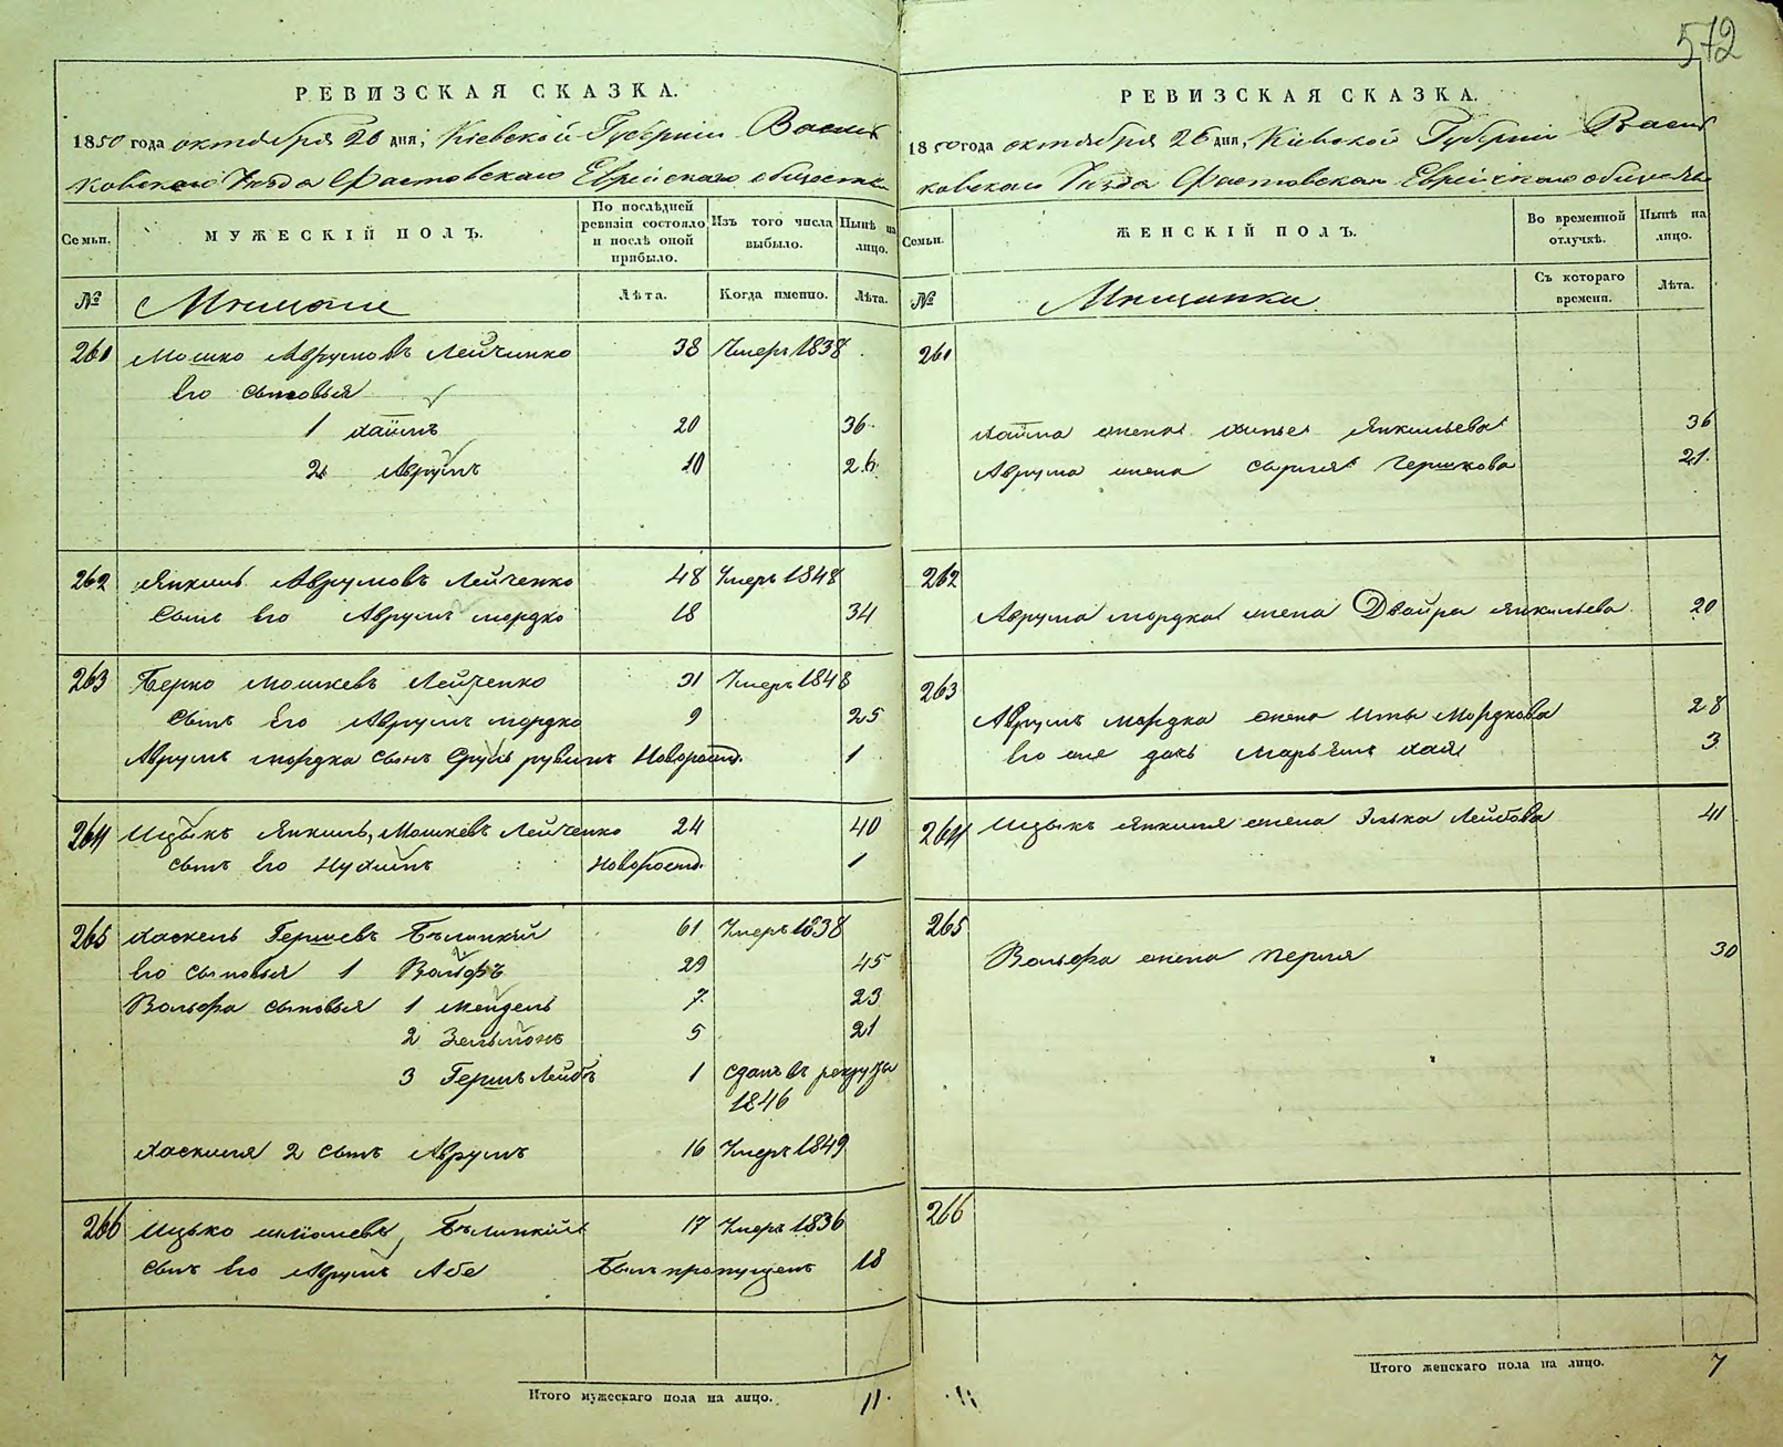 572
РЕВИЗСКАЯ СКАЗКА.
1850 года октября 26 дня, Кіевской Губерніи Василь
ковскаго Уѣзда Фастовскаго Еврейскаго общества
Семьи.
МУЖЕСКІЙ ПОЛЪ.
По послѣдней ревизіи состояло и послѣ оной прибыло.
Изъ того числа выбыло.
Нынѣ на лицо.
№ Мѣщане Лѣта. Когда именно. Лѣта.
261 Мошко Аврумовъ Лейченко 38 Умеръ 1838
Его сыновья
1 Хаимъ 20 36
2 Аврумъ 10 26
262 Янкель Аврумовъ Лейченко 48 Умеръ 1848
Сынъ его Аврумъ мордко 18 34
263 Берко Мошкевъ Лейченко 31 Умеръ 1848
Сынъ Его Аврумъ мордко 9 25
Аврумъ мордка сынъ Сруль рувинъ Новорожд. 1
264 Ицыкъ Янкель, Мошкевъ Лейченко 24 40
сынъ его Нухимъ Новорожд. 1
265 Хаскель Гершевъ Бѣлицкій 61 Умеръ 1838
Его сыновья 1 Вольфъ 29 45
Вольфа сыновья 1 Мендель 7 23
2 Зельманъ 5 21
3 Гершъ Лейбъ 1 сданъ въ рекруты
1846
Хаскеля 2 сынъ Аврумъ 16 Умеръ 1849
266 Ицько Бѣлицкій 17 Умеръ 1836
сынъ его Аврумъ Абе Былъ пропущенъ 18
Итого мужескаго пола на лицо. 11.
РЕВИЗСКАЯ СКАЗКА.
1850 года октября 26 дня, Кіевской Губерніи Василь
ковскаго Уѣзда Фастовскаго Еврейскаго общества
Семьи.
ЖЕНСКІЙ ПОЛЪ.
Во временной отлучкѣ.
Нынѣ на лицо.
№ Мѣщанки Съ котораго времени. Лѣта.
261
Хаима жена Янкелева 36
Аврума жена Гершкова 21
262
Аврума мордка жена Двойра Янкелева 20
263
Аврумъ мордка жена Ита Мордкова 28
Его же дочь Марьямъ Хая 3
264 Ицыкъ Янкеля жена Элька Лейбова 41
265
Вольфа жена Перля 30
266
Итого женскаго пола на лицо. 7